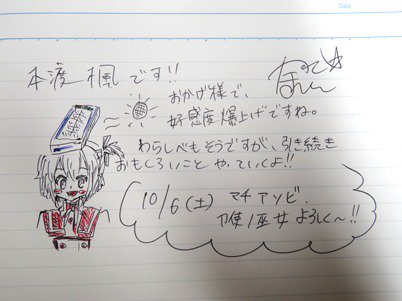 本渡楓です!!
おかげ様で、
好感度爆上げですね。
わらしべもそうですが、引き続き
おもしろいことやっていくよ!!
10/6(土) マチアソビ.
刀使ノ巫女 よろしく〜!!
Date